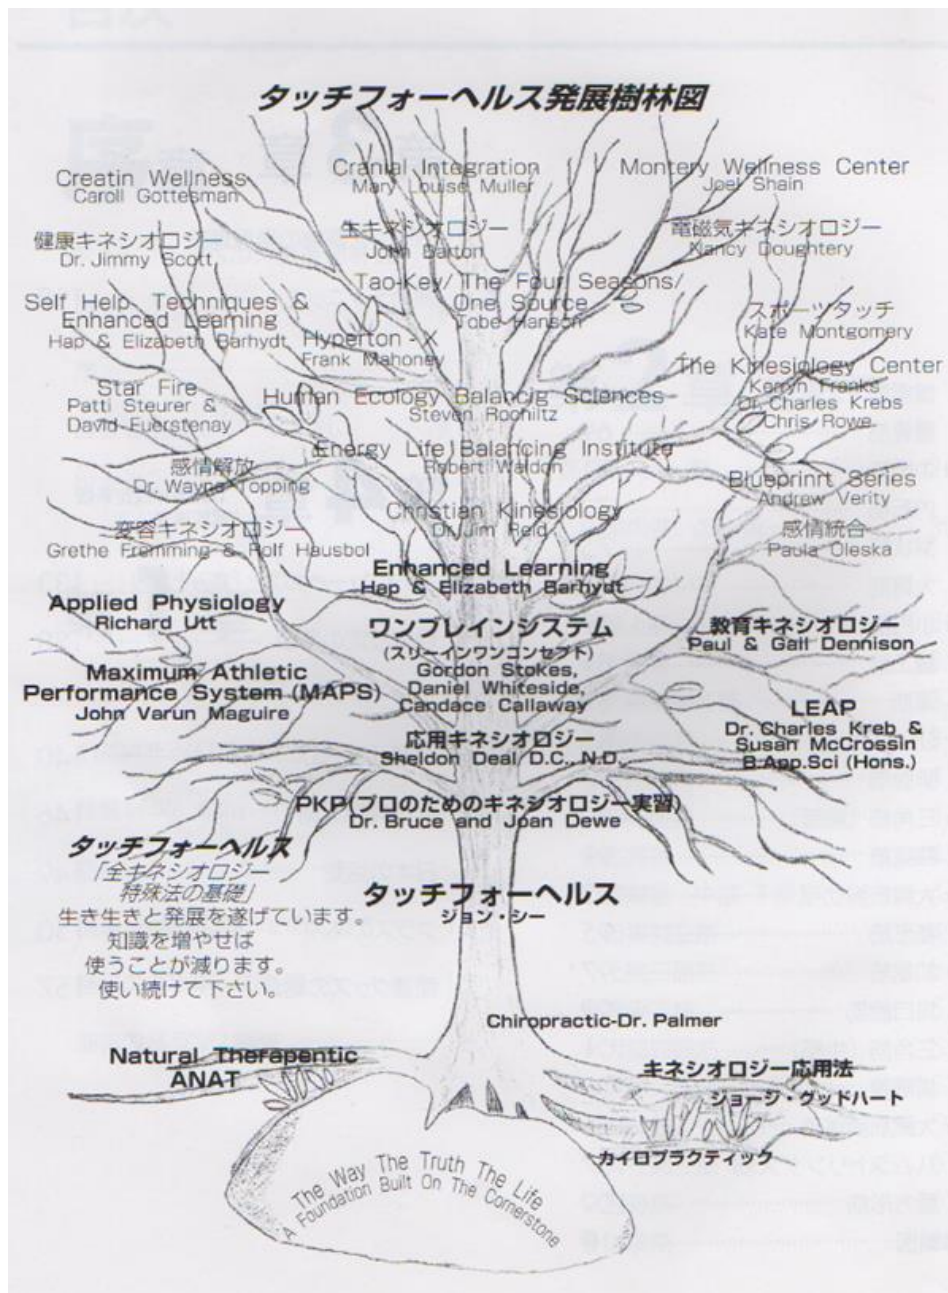 タッチフォーヘルス発展樹林図
Creatin Wellness
Caroll Gottesman
Cranial Integration
Mary Louise Muller
Montery Wellness Center
Joel Shain
健康キネシオロジー
Dr. Jimmy Scott
生キネシオロジー
John Barton
電磁気キネシオロジー
Nancy Doughtery
Tao-Key/ The Four Seasons/
One Source
Tobe Hanson
Self Help Techniques &
Enhanced Learning
Hap & Elizabeth Barhydt
Hyperton - X
Frank Mahoney
スポーツタッチ
Kate Montgomery
The Kinesiology Center
Kerryn Franks
Dr. Charles Krebs
Chris Rowe
Star Fire
Patti Steurer &
David Fuerstenay
Human Ecology Balancig Sciences
Steven Rochiltz
Energy Life Balancing Institute
Robert Waldon
感情解放
Dr. Wayne Topping
Blueprinrt Series
Andrew Verity
Christian Kinesiology
Dr. Jim Reid
変容キネシオロジー
Grethe Fremming & Rolf Hausbol
感情統合
Paula Oleska
Enhanced Learning
Hap & Elizabeth Barhydt
Applied Physiology
Richard Utt
ワンブレインシステム
(スリーインワンコンセプト)
Gordon Stokes,
Daniel Whiteside,
Candace Callaway
教育キネシオロジー
Paul & Gail Dennison
Maximum Athletic
Performance System (MAPS)
John Varun Maguire
LEAP
Dr. Charles Kreb &
Susan McCrossin
B.App.Sci (Hons.)
応用キネシオロジー
Sheldon Deal D.C., N.D.
PKP(プロのためのキネシオロジー実習)
Dr. Bruce and Joan Dewe
タッチフォーヘルス
「全キネシオロジー
特殊法の基礎」
生き生きと発展を遂げています。
知識を増やせば
使うことが減ります。
使い続けて下さい。
タッチフォーヘルス
ジョン・シー
Chiropractic-Dr. Palmer
Natural Therapentic
ANAT
キネシオロジー応用法
ジョージ・グッドハート
カイロプラクティック
The Way The Truth The Life
A Foundation Built On The Cornerstone